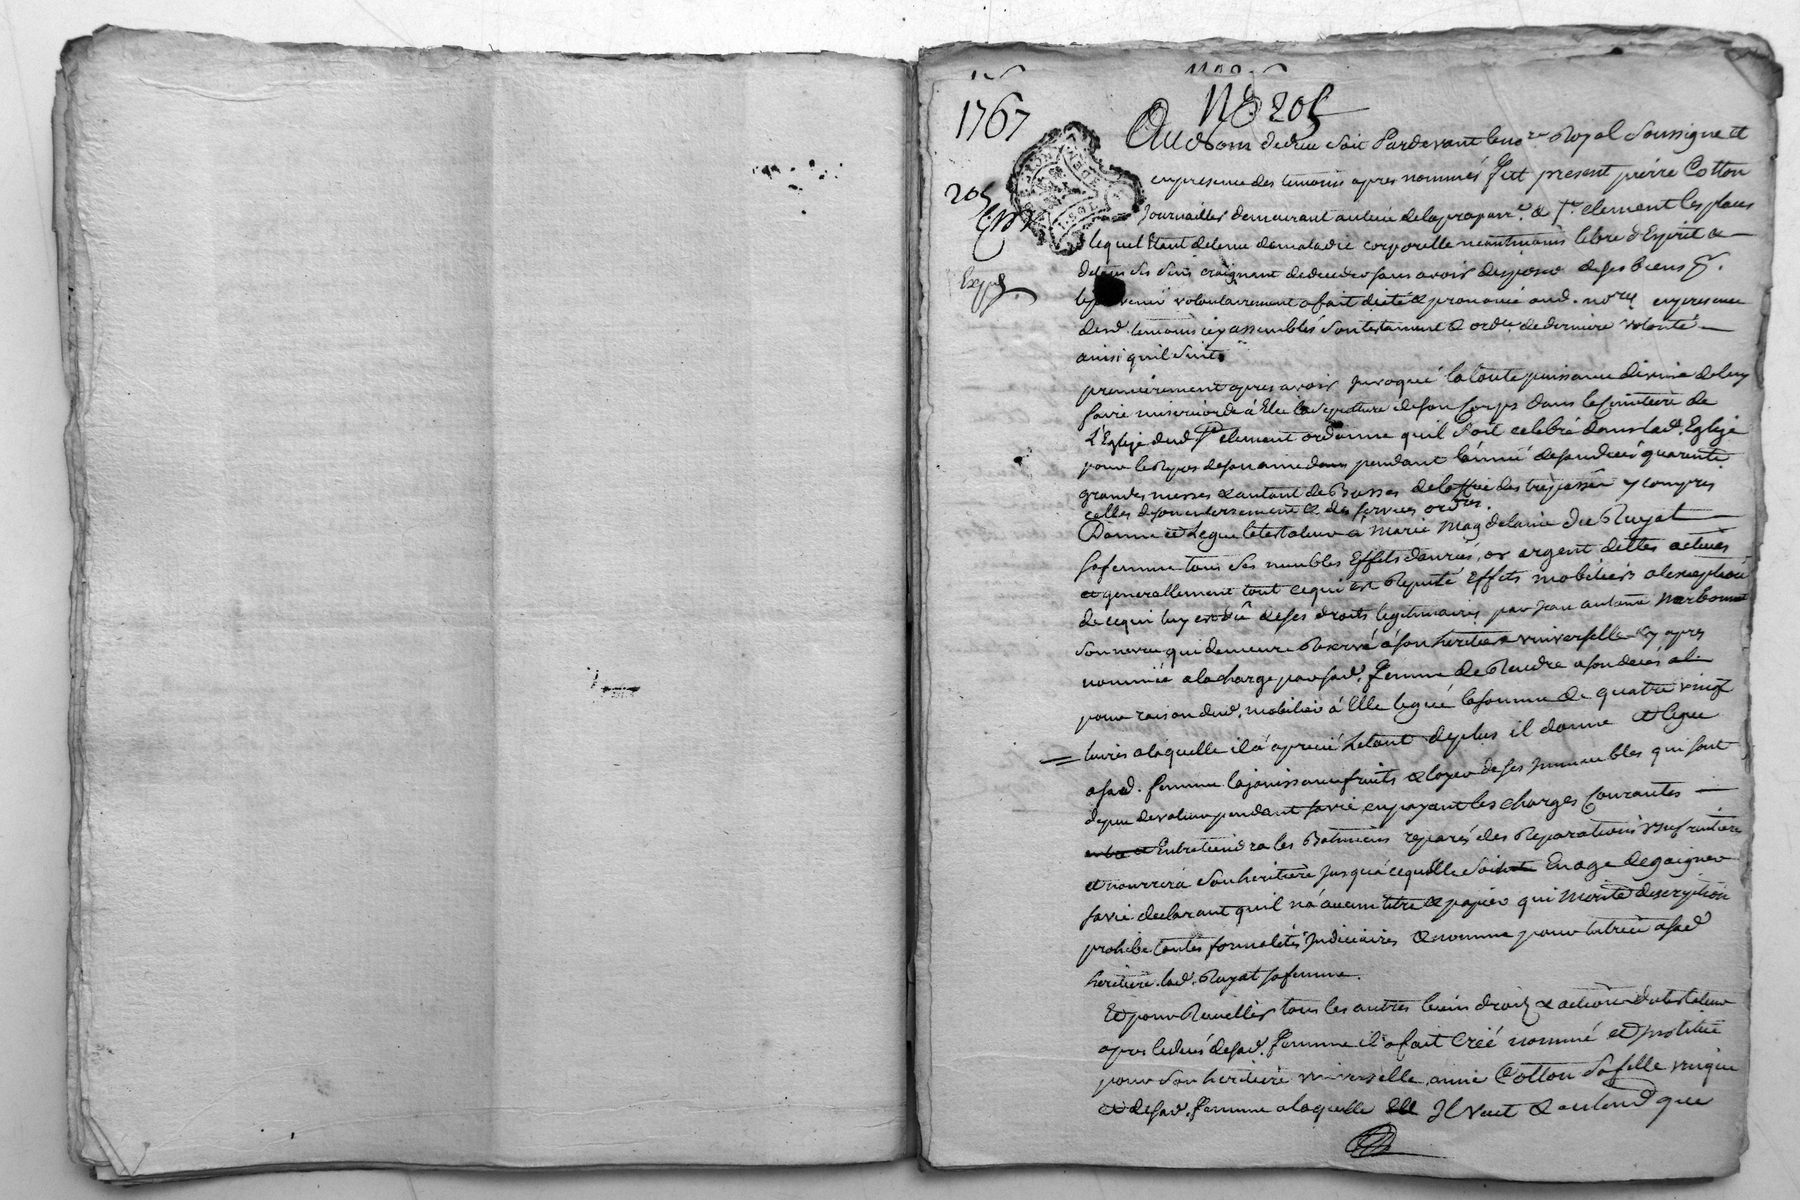 1767
N.º 205
205
Expé
Au Nom de dieu soit Pardevant le no.re Royal soussigné et
en presence des temoins apres nommés fut present pierre Cotton
Journaillier demeurant au lieu de la par.e de S.t clement les places
lequel Etant detenu de maladie corporelle neantmoins libre d'Esprit &
de tous ses sens craignant de deceder sans avoir disposé de ses biens &.
volontairement a fait dicté & prononcé aud. no.re en presence
desd. temoins icy assemblés son testament & ord.ce de derniere volonté
ainsi quil suit
premierement apres avoir Invoqué la toute puissance divine de luy
faire misericorde à Elu la sepulture de son Corps dans le Cimetiere de
L'Eglise dud S.t clement ordonne quil soit celebré dans lad. Eglise
pour le Repos de son ame dans pendant l'année de son decés quarente
grandes messes & autant de Basses de l'office des trepassés y compris
celles de son enterrement & des services ord.res.
Donne et Legue le testateur à Marie Magdelaine Du Ruyat
sa femme tous ses meubles Effets danrées, or argent dettes actives
et generallement tout ce qui est Reputé Effets mobiliers a l'exception
de ce qui luy est dû de ses droits legitimaires par Jean antoine Narbonne
son neveu qui demeure Reservé à son heritiere universelle cy apres
nommée a la charge par sad. femme de Rendre a son decés a la
pour raison dud. mobilier à Elle legué la somme de quatre vingt
livres a laquelle il a aprecié Letout de plus il donne et legue
a sad. femme la jouissance fruits & loyer de ses Immeubles qui sont
de peu de valeur pendant sa vie en payant les charges Courantes
Entretiendra les Batiments reparés des Reparations usufruitiere
et nourrira son heritiere Jusqu'à ce quelle soit En age de gaigner
sa vie declarant quil n'a aucun titre & papier qui Merite description
prohibe toutes formalités Judiciaires & nomme pour tutrice a sad
heritiere lad. Ruyat sa femme.
Et pour Recueillir tous les autres biens droits & actions du testateur
apres le decés de sad. femme il a fait Créé nommé et Institué
pour son heritiere universelle anne Cotton sa fille unique
et de sad. femme a laquelle Il veut & entend que